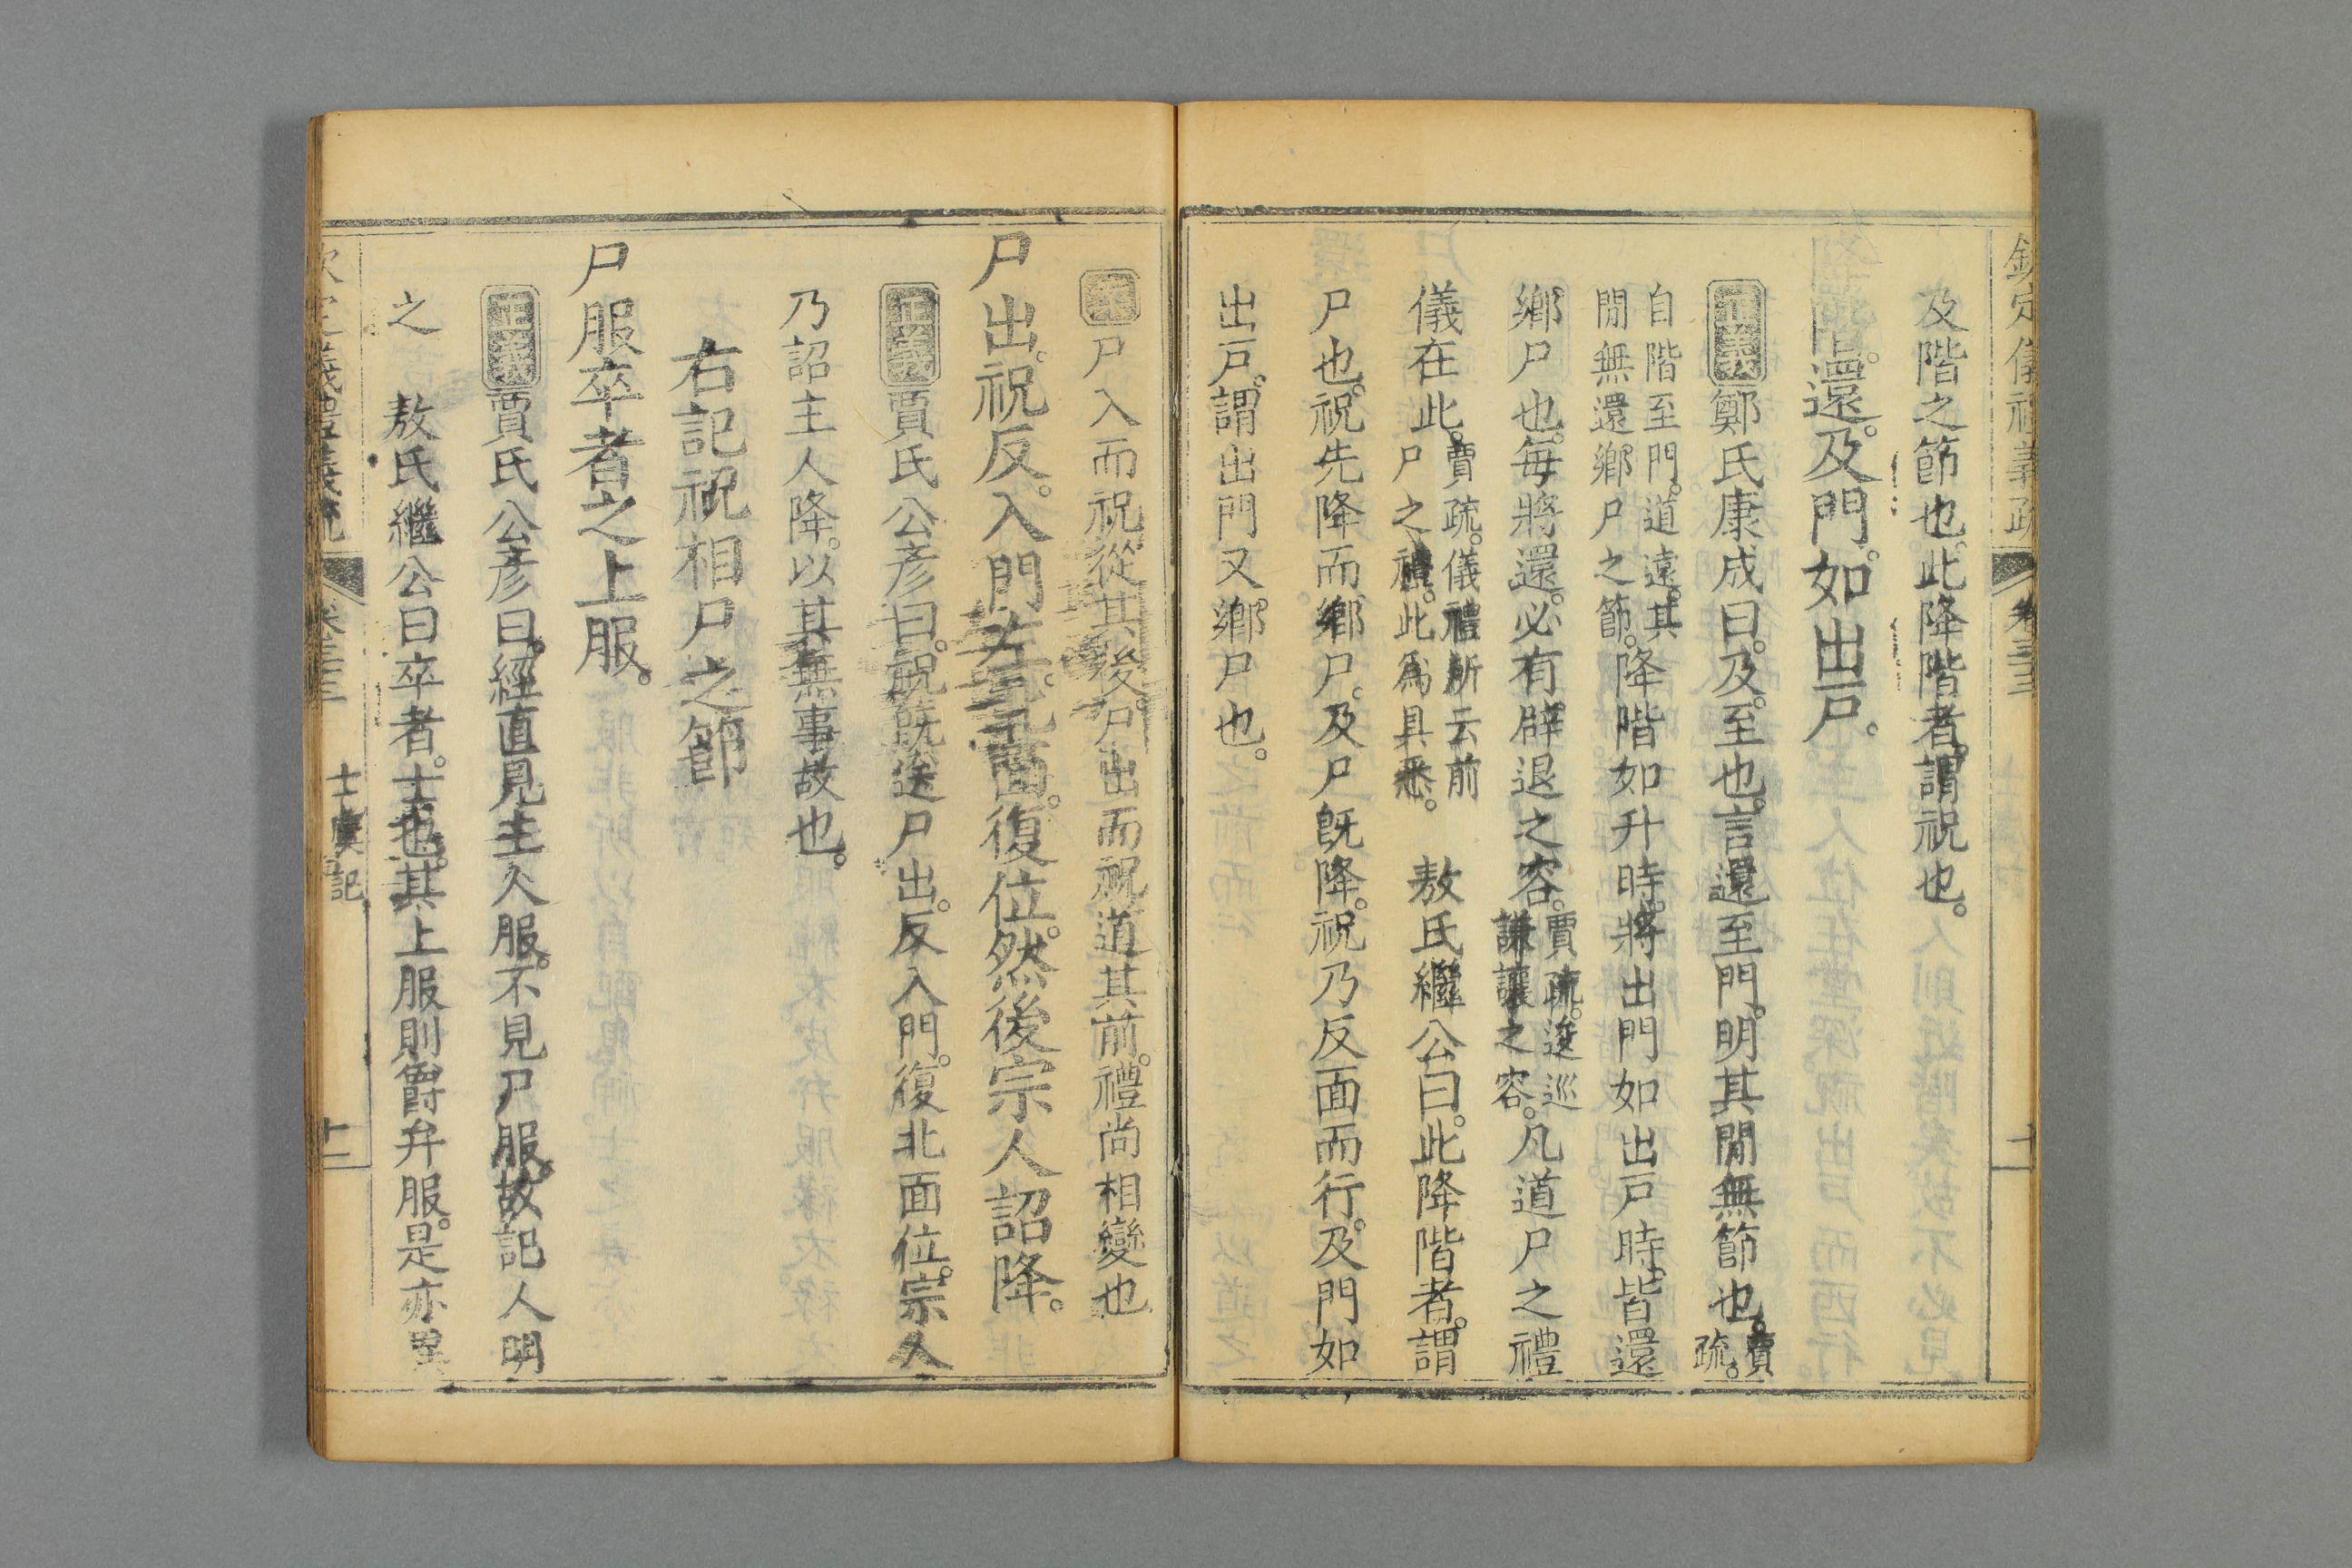 欽定儀禮義疏 卷三十三 十一
及階之節也。此降階者。謂祝也。
降階。還。及門。如出戶。
正義 鄭氏康成曰。及。至也。言還至門。明其間無節也。賈疏。
自階至門。道遠。其
閒無還鄉尸之節。降階如升時。將出門如出戶時。皆還
鄉尸也。每將還。必有辟退之容。賈疏。逡巡
謙讓之容。凡道尸之禮
儀在此。賈疏。儀禮所云前
尸之禮。此為具悉。 敖氏繼公曰。此降階者。謂
尸也。祝先降而鄉尸。及尸既降。祝乃反面而行。及門如
出戶。謂出門又鄉尸也。
案 尸入而祝從其後。尸出而祝道其前。禮尚相變也
尸出。祝反。入門左。北面。復位。然後宗人詔降。
正義 賈氏公彥曰。祝既送尸出。反入門。復北面位。宗人
乃詔主人降。以其無事故也。
右記祝相尸之節
尸服卒者之上服。
正義 賈氏公彥曰。經直見主人服。不見尸服。故記人明
之 敖氏繼公曰卒者。士也。其上服則爵弁服。是亦異
欽定儀禮義疏 卷三十三 士虞記 十二